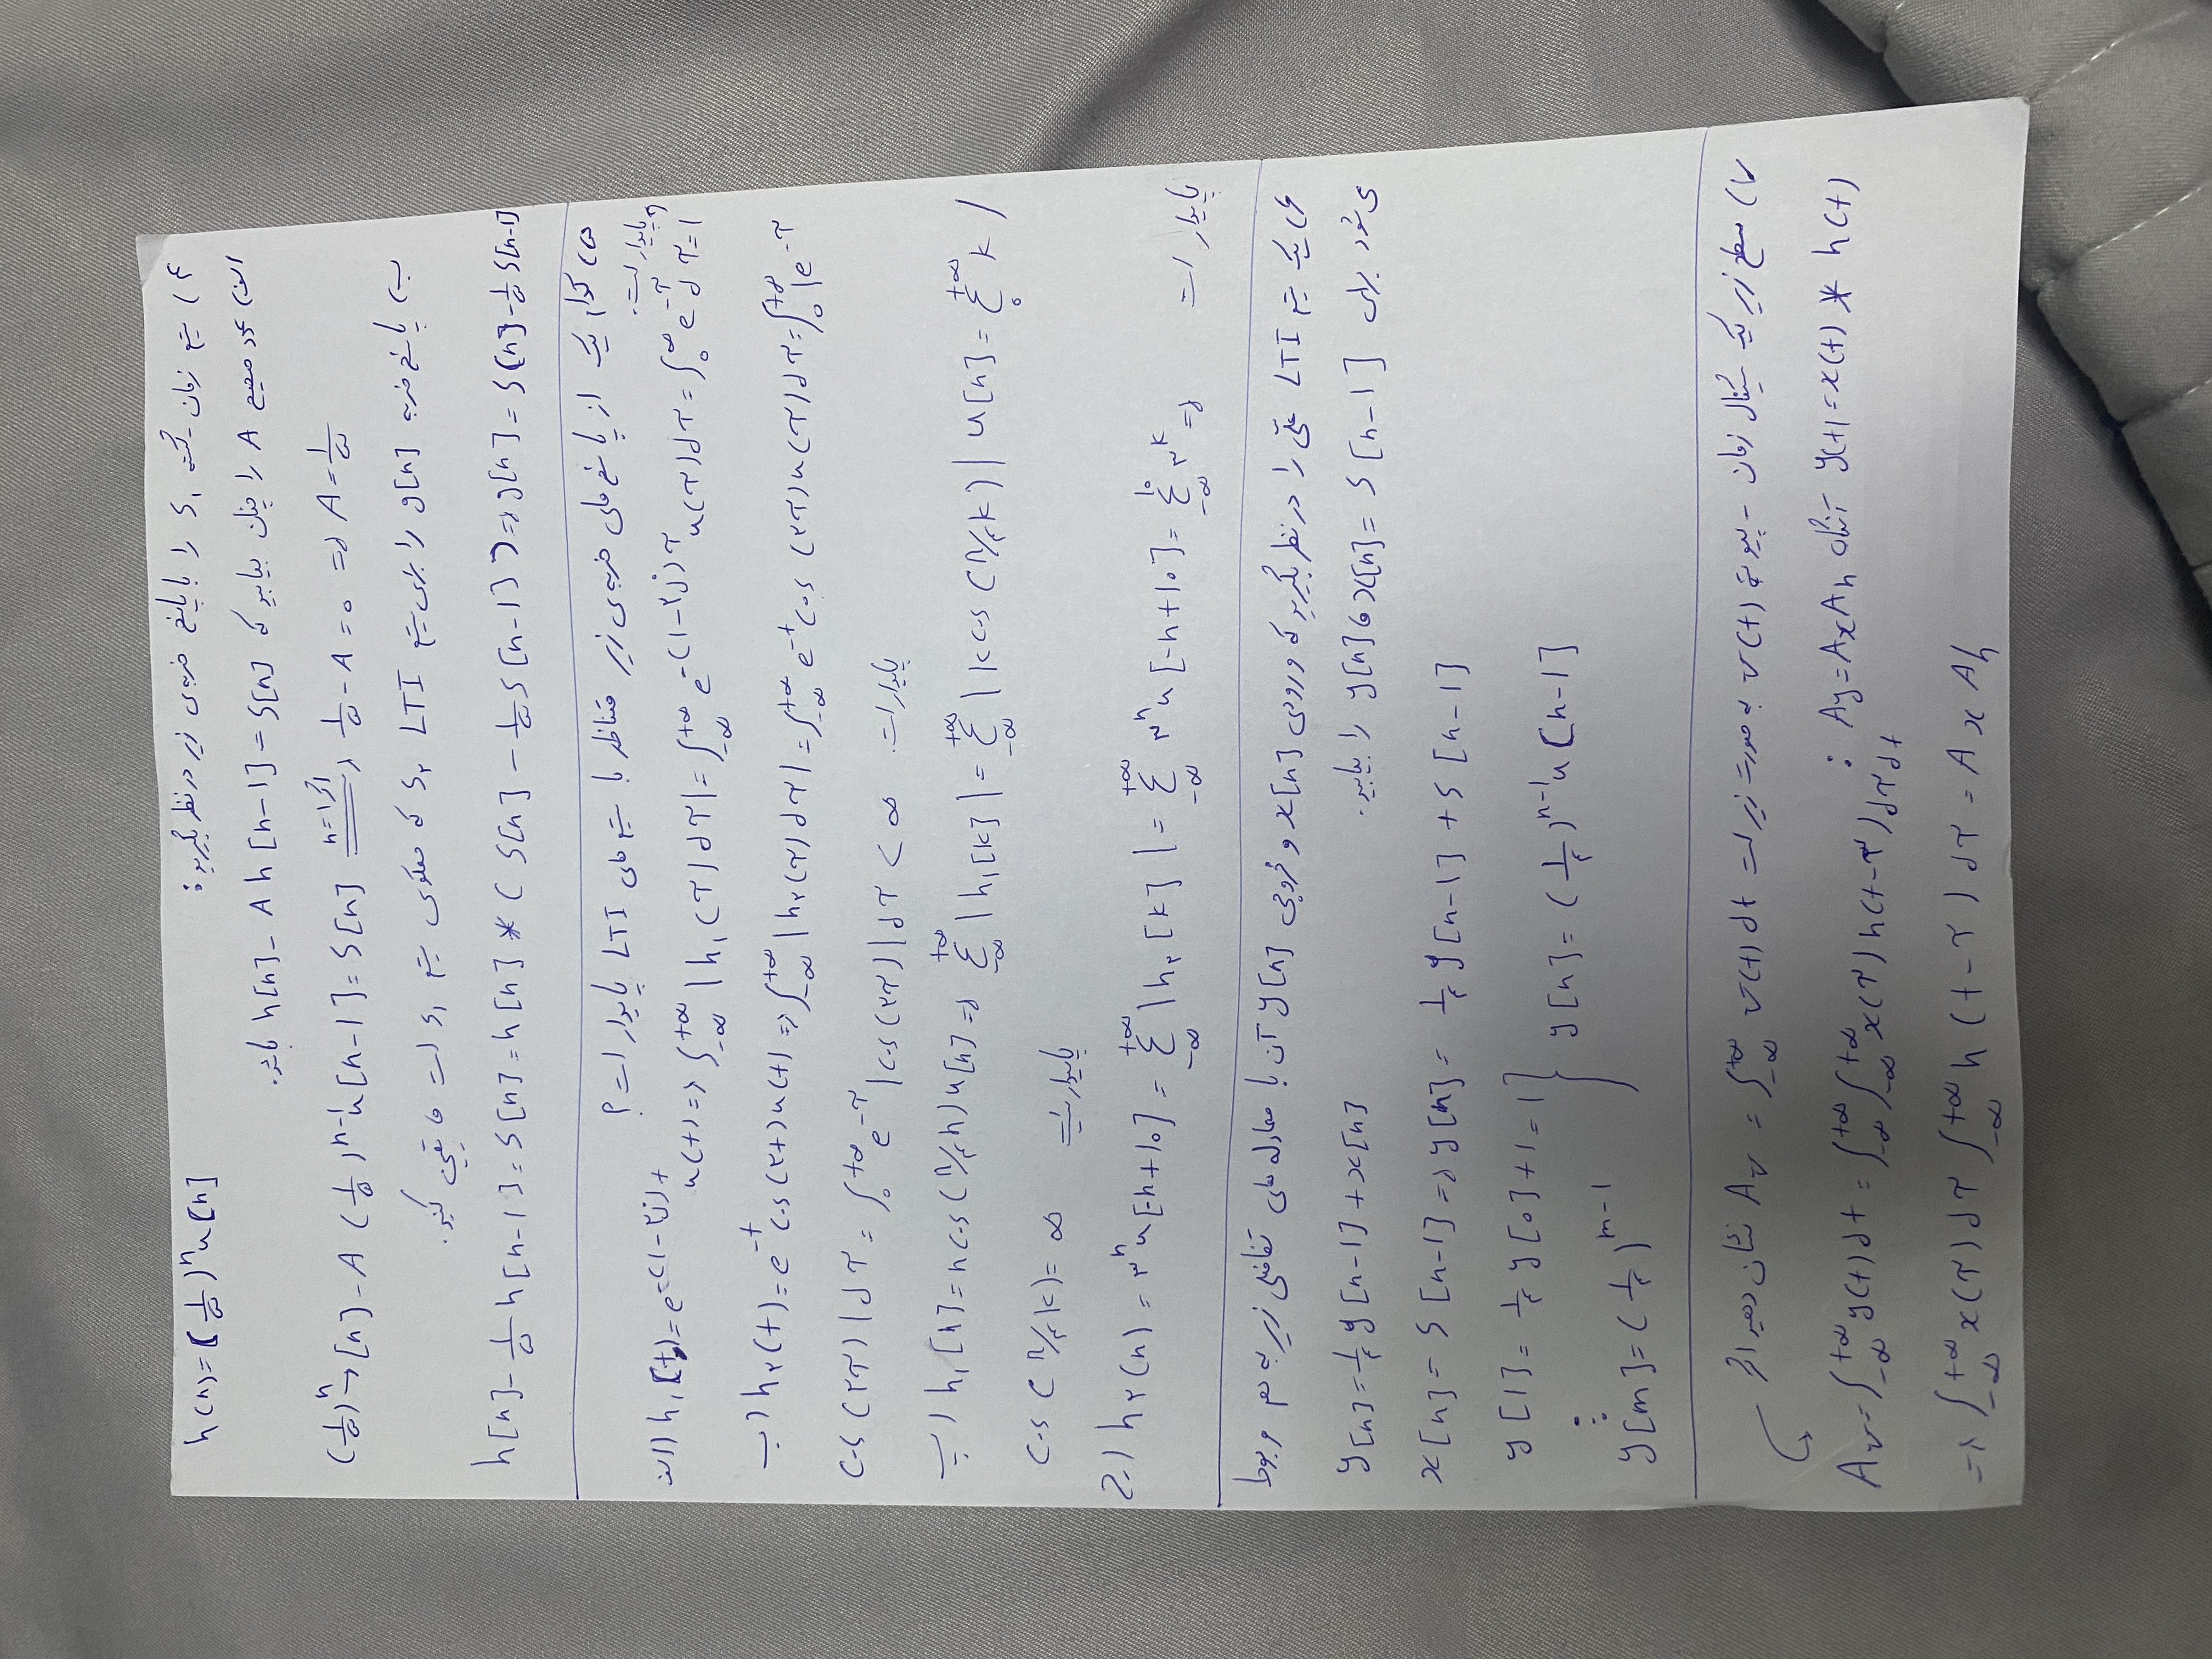 ۴) سیستم زمان-گسسته S۱ را با پاسخ ضربه‌ی زیر در نظر بگیرید: h(n)=(1/۵)^n u[n]
الف) عدد صحیح A را چنان بیابید که h[n] - A h[n-1] = δ[n] باشد.
(1/۵)^n u[n] - A (1/۵)^n-1 u[n-1] = δ[n] اگر n=1 ⇒ 1/۵ - A = ۰ ⇒ A = 1/۵
ب) پاسخ ضربه g[n] را برای سیستم LTI S۲ که معکوس سیستم S۱ است تعیین کنید.
h[n] - 1/۵ h[n-1] = δ[n] = h[n] * (δ[n] - 1/۵ δ[n-1]) ⇒ g[n] = δ[n] - 1/۵ δ[n-1]
۵) کدام یک از پاسخ های ضربه‌ی زیر متناظر با سیستم های LTI پایدار است؟
پایدار است.
الف) h۱(t) = e^-(1-۲j)t u(t) ⇒ ∫-∞^+∞ |h۱(τ) dτ| = ∫-∞^+∞ e^-(1-۲j)τ u(τ) dτ = ∫۰^∞ e^-τ dτ = 1
ب) h۲(t) = e^-t cos(۲t) u(t) ⇒ ∫-∞^+∞ |h۲(τ) dτ| = ∫-∞^+∞ e^-t cos(۲τ) u(τ) dτ = ∫۰^+∞ |e^-τ
cos(۲τ)| dτ = ∫۰^+∞ e^-τ |cos(۲τ)| dτ < ∞ پایدار است.
پ) h۱[n] = n cos(π/۴ n) u[n] ⇒ Σ-∞^+∞ |h۱[k]| = Σ-∞^+∞ |k cos(π/۴ k)| u[n] = Σ۰^+∞ k |
cos(π/۴ k) = ∞ پایدار نیست
ج) h۲(n) = ۳^n u[-n+1۰] = Σ-∞^+∞ |h۲[k]| = Σ-∞^+∞ ۳^n u[-n+1۰] = Σ-∞^1۰ ۳^k ⇒ پایدار است
۶) یک سیستم LTI علّی را در نظر بگیرید که ورودی x[n] و خروجی y[n] آن با معادله های تفاضلی زیر به هم مربوط
می شود برای x[n] = δ[n-1]، y[n] را بیابید. y[n] = 1/۴ y[n-1] + x[n]
x[n] = δ[n-1] ⇒ y[n] = 1/۴ y[n-1] + δ[n-1]
y[1] = 1/۴ y[۰] + 1 = 1
⋮
y[m] = (1/۴)^m-1
} y[n] = (1/۴)^n-1 u[n-1]
۷) سطح زیر یک سیگنال زمان - پیوسته v(t) به صورت زیر است Av = ∫-∞^+∞ v(t) dt نشان دهید اگر
y(t) = x(t) * h(t) آنگاه Ay = Ax Ah :
Av = ∫-∞^+∞ y(t) dt = ∫-∞^+∞ ∫-∞^+∞ x(τ) h(t-τ) dτ dt
⇒ ∫-∞^+∞ x(τ) dτ ∫-∞^+∞ h(t-τ) dτ = Ax Ah